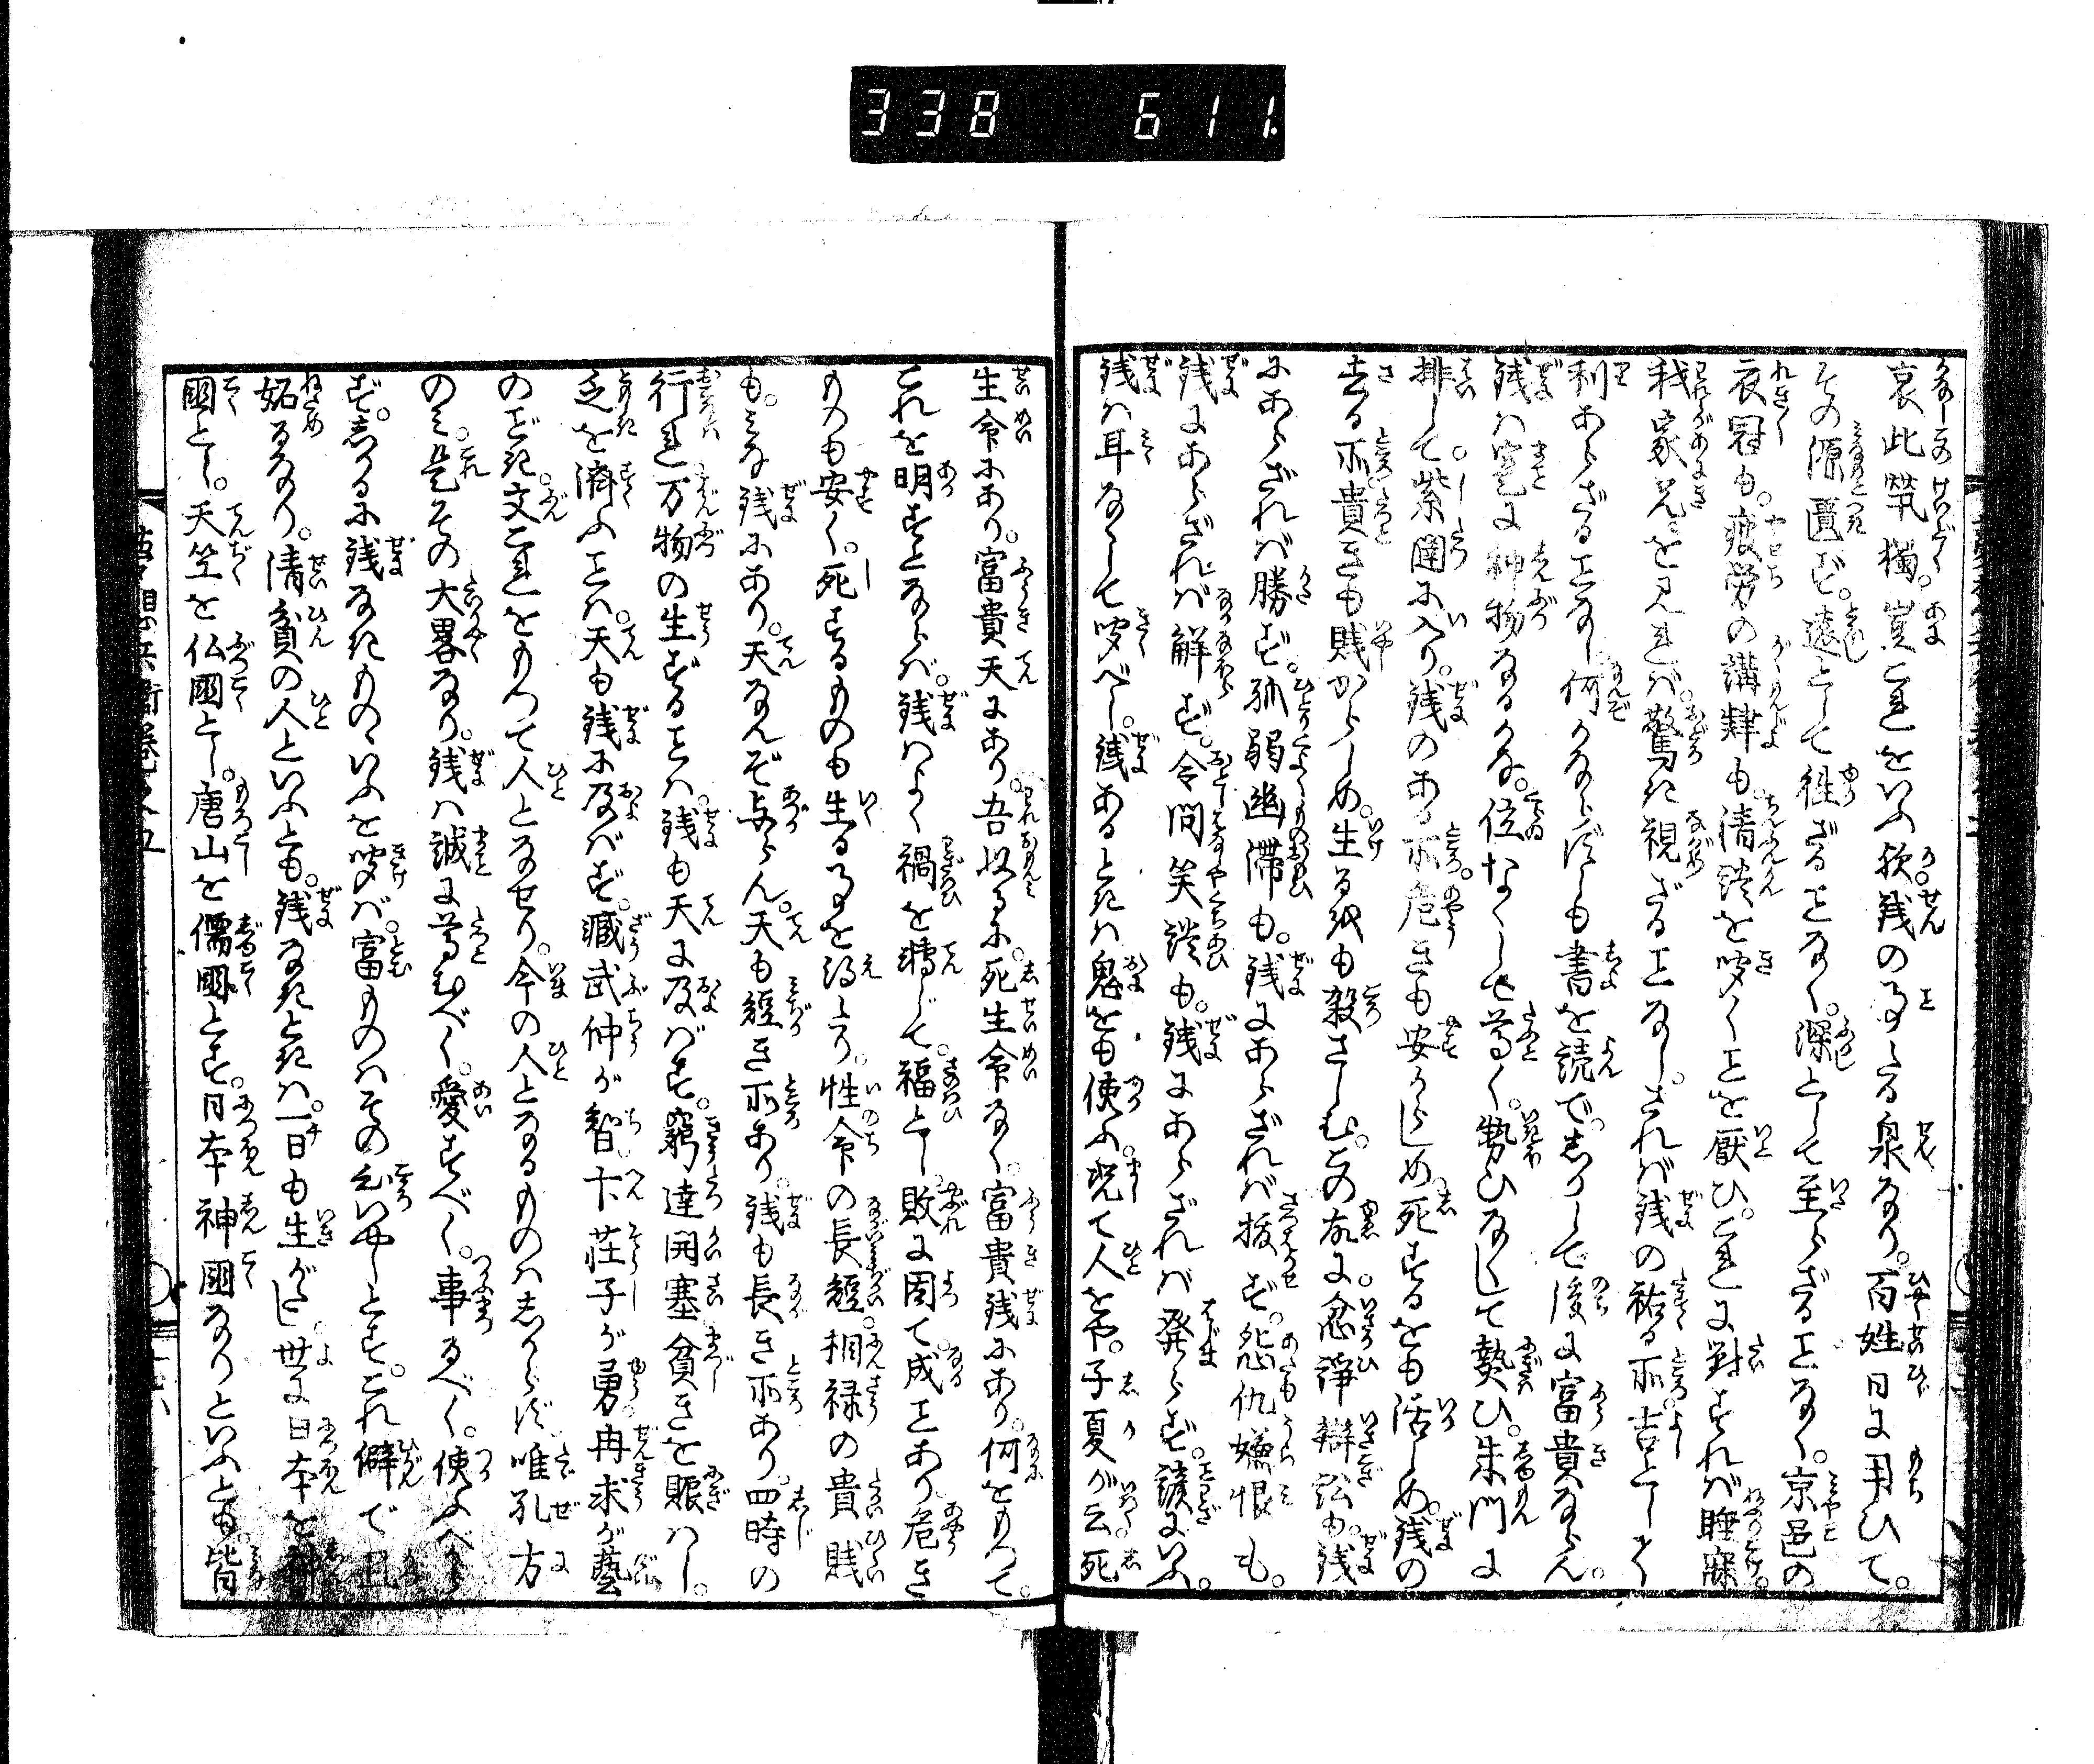 338 611
哀此煢獨。豈これをいふ歟。銭の㕝たる泉なり。百姓日に用ひて。
その源匱ず。遠として徃ざることなく。深として至らざることなく。京邑の
衣冠も。疲労の講肆も。清談を咬くことを厭ひ。これに對すれば睡寐。
我家兄を見れば。驚き視ざることなし。されば銭の祐る所。吉として
利あらざることなし。何かならずしも書を読で。しかして後に富貴ならん。
銭は寔に神物なるかな。位なくして尊く。勢ひなくして熱ひ。朱門に
排して。紫闥に入り。銭のある所。危きも安からしめ。死するをも活しめ。銭の
去る所。貴きも賤からしめ。生るをも殺さしむ。この故に。忿諍辯訟も。銭
にあらざれば勝ず。孤弱幽滞も。銭にあらざれば抜ず。怨仇嫌恨も。
銭にあらざれば解ず。令問笑談も。銭にあらざれば発らず。諺にいふ。
銭は耳なくして咬べし。銭あるときは鬼をも使ふ。况て人をや。子夏が云。死
生命にあり。富貴天にあり。吾以るに。死生命なく。富貴銭にあり。何をもつて。
これを明すとならば。銭はよく禍を轉じて。福とし。敗に因て成ことあり。危き
ものも安く。死するものも生る㕝を得たり。性命の長短。相禄の貴賤
も。みな銭にあり。天なんぞ与らん。天も短き所あり。銭も長き所あり。四時の
行れ万物の生ずることは。銭も天に及ばず。窮達開塞。貧きを賑はし。
乏を済ふことは。天も銭に及ばず。臧武仲が智。卞莊子が勇。冉求が藝
のごとき。文これをもつて人となせり。今の人となるものはしからず。唯孔方
のみ。是その大畧なり。銭は誠に尊むべく。愛すべく。事るべく。使ふべから
ず。しかるに銭なきものゝいふを咬ば。富ものはその心いやしとす。これ僻で
妬るなり。清貧の人といふとも。銭なきときは。一日も生がたし。世に日本を神
國とし。天竺を仏國とし。唐山を儒國とす。日本神國なりといふとも。皆